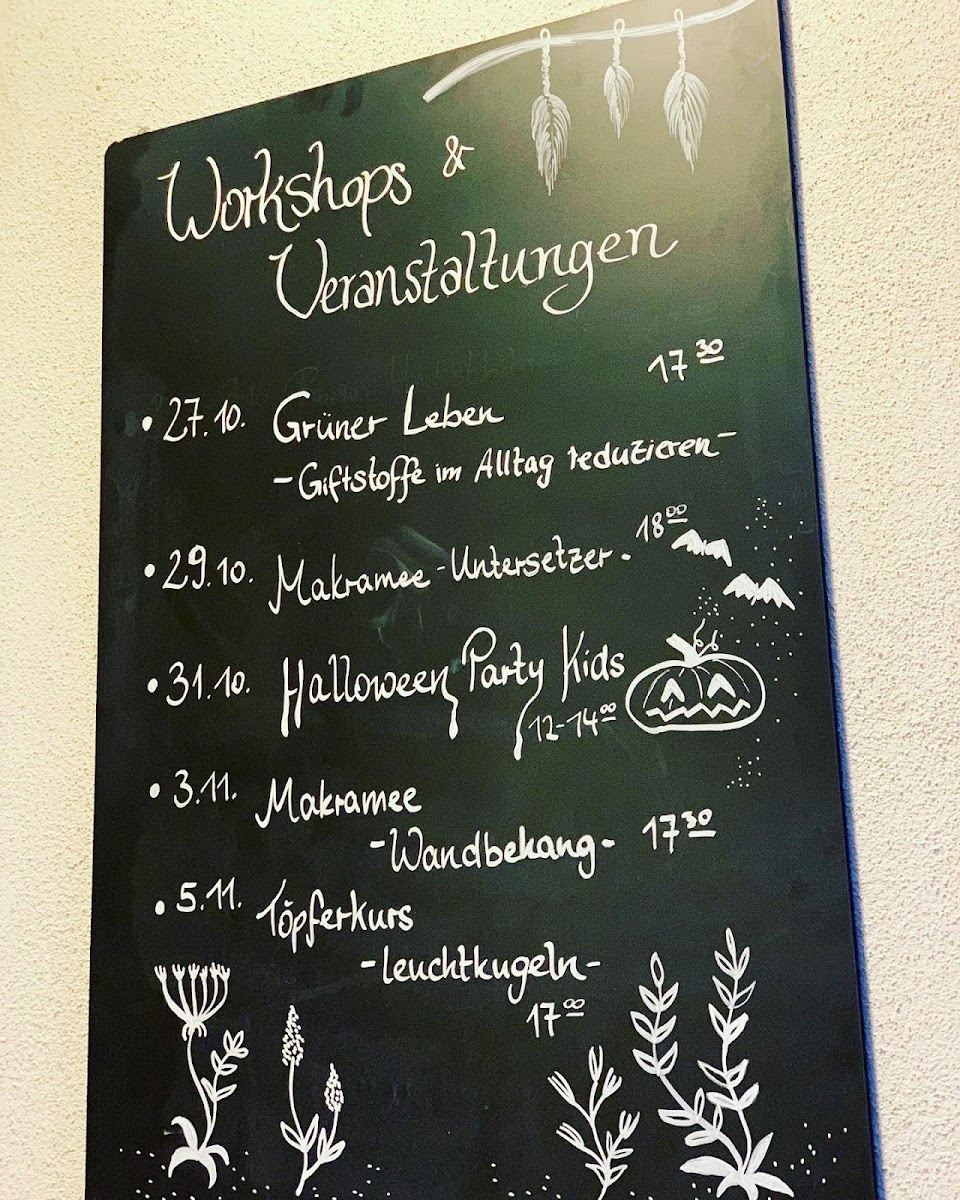 Workshops &
Veranstaltungen
17 30
• 27.10. Grüner Leben
- Giftstoffe im Alltag reduzieren -
• 29.10. Makramee - Untersetzer - 18 00
• 31.10. Halloween Party Kids
12-14 00
• 3.11. Makramee
- Wandbehang - 17 30
• 5.11. Töpferkurs
- leuchtkugeln -
17 00